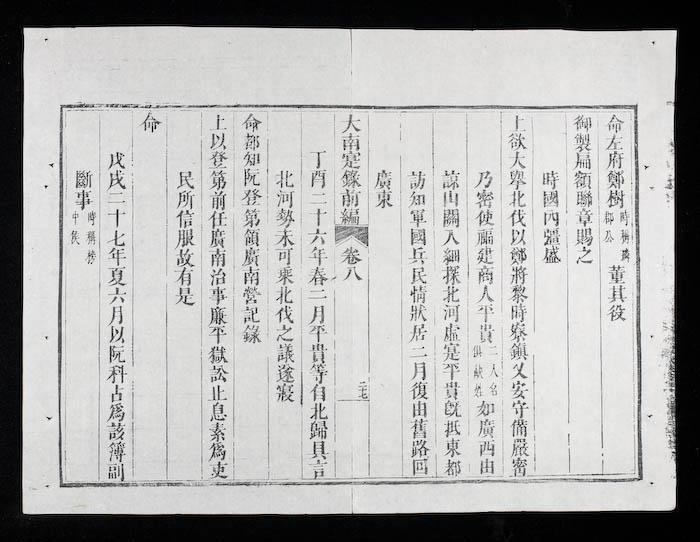 命左府鄭樹時稱璘郡公董其役
御製扁額聯章賜之
時國內彊盛
上欲大舉北伐以鄭將黎時寮鎮乂安守備嚴密
乃密使福建商人平貴二人名俱缺姓如廣西由
諒山關入細探北河虛寔平貴旣抵東都
訪知軍國兵民情狀居二月復由舊路回
廣東
大南寔錄前編 卷八 二七
丁酉二十六年春二月平貴等自北歸具言
北河勢未可乘北伐之議遂寢
命都知阮登第領廣南營記錄
上以登第前任廣南治事廉平獄訟止息素爲吏
民所信服故有是
命
戊戌二十七年夏六月以阮科占爲該簿副
斷事時稱榜中侯